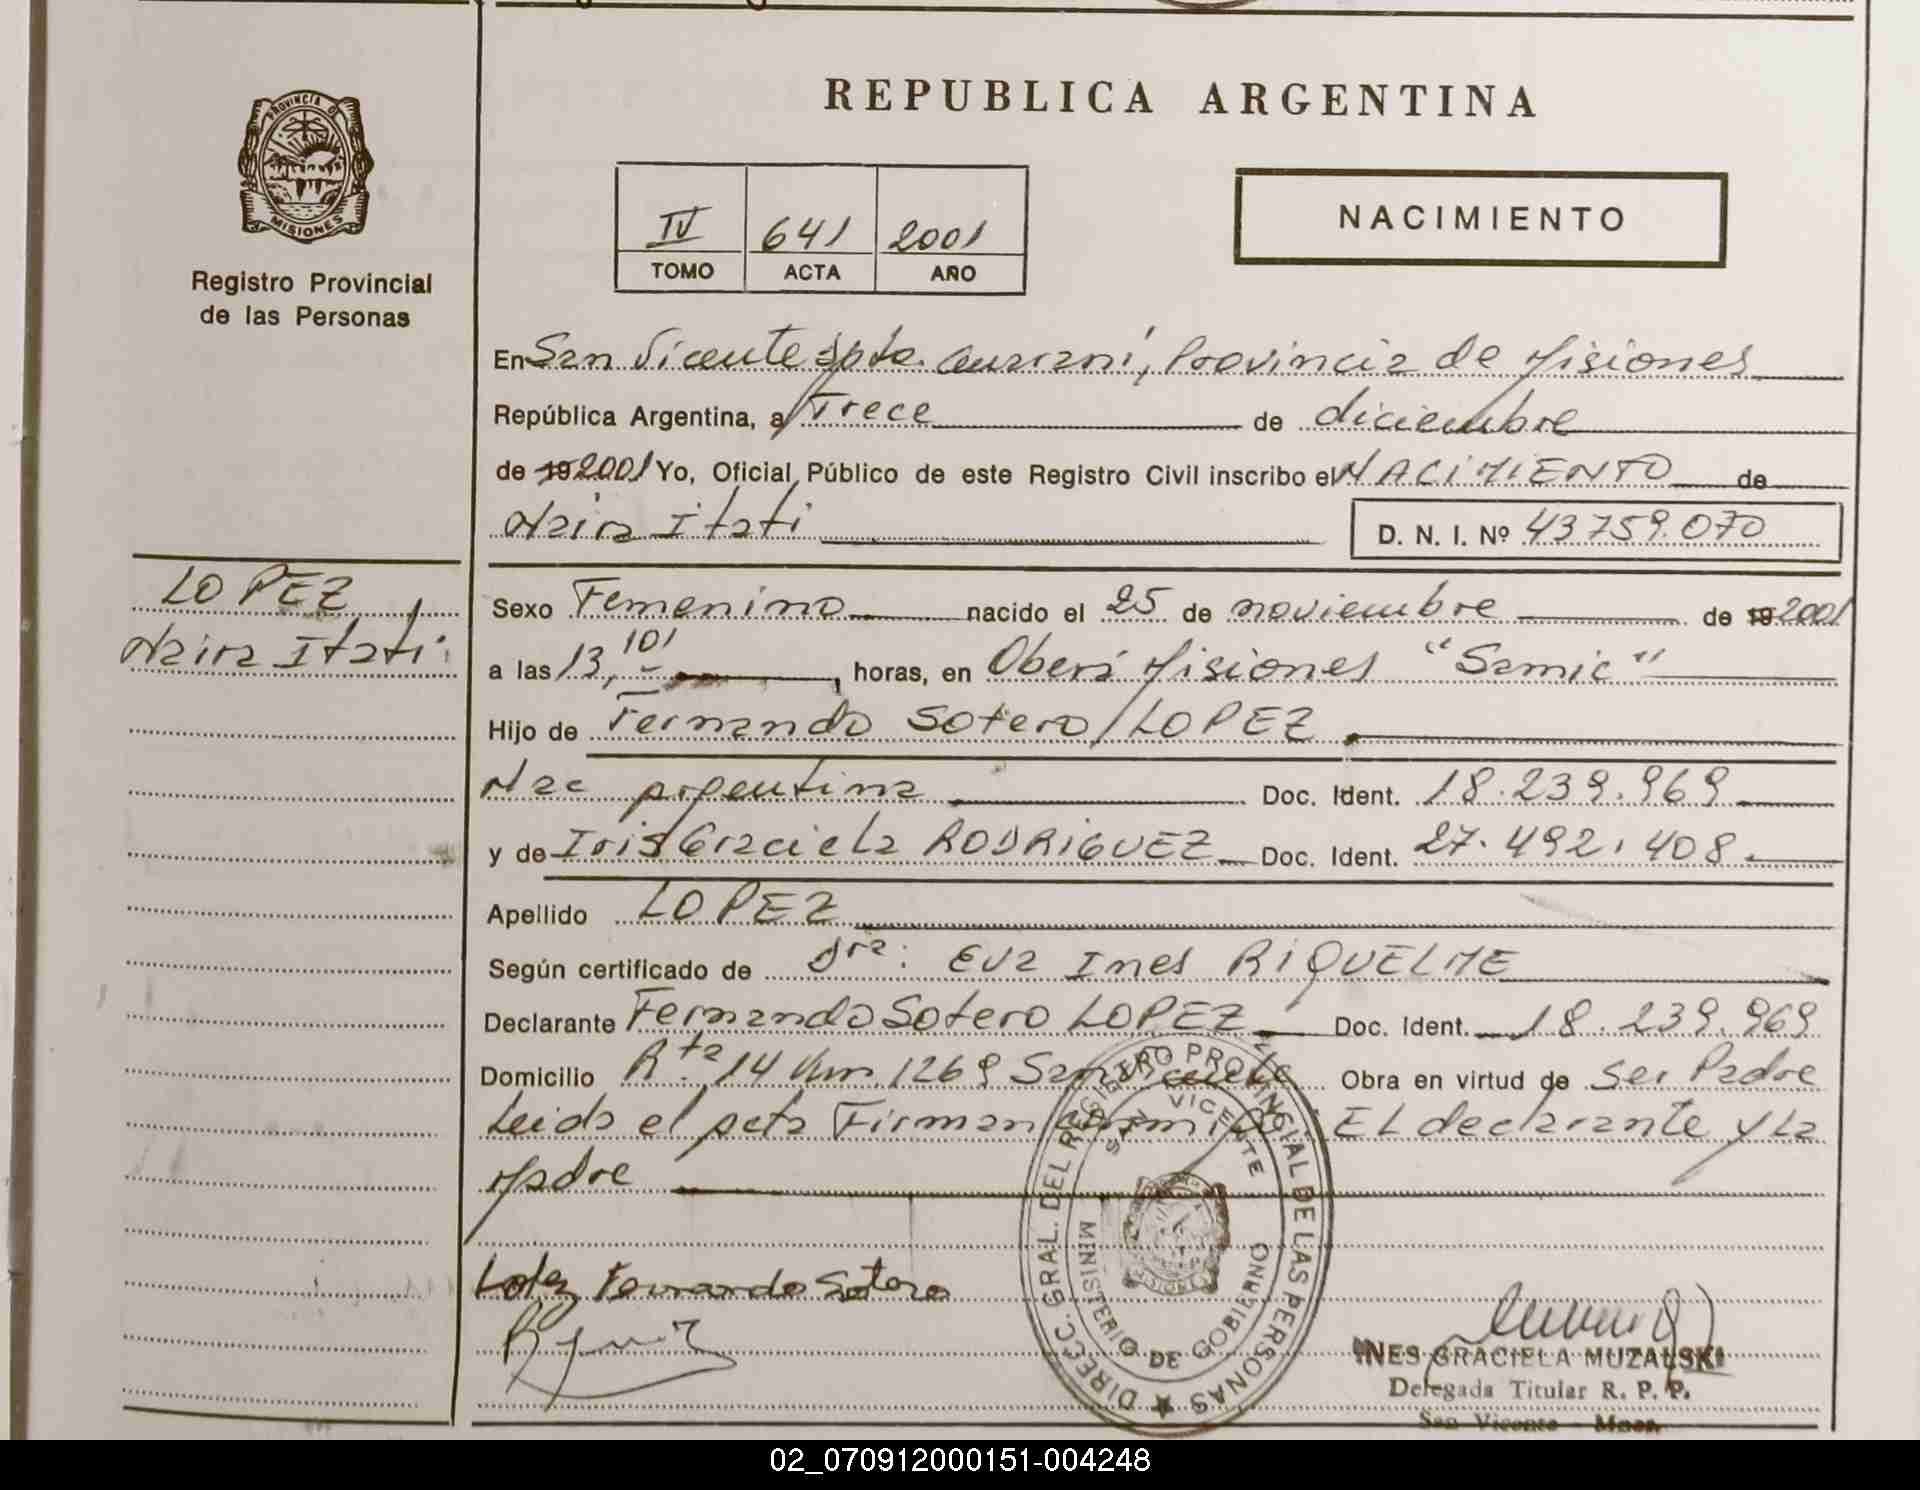 PROVINCIA DE
MISIONES
Registro Provincial
de las Personas
LOPEZ
Naira Itati.
REPUBLICA ARGENTINA
IV 641 2001
TOMO ACTA AÑO
NACIMIENTO
En San Vicente Dpto. Guaraní, Provincia de Misiones
República Argentina, a Trece de diciembre
de 19 2001 Yo, Oficial Público de este Registro Civil inscribo el NACIMIENTO de
Naira Itati D. N. I. Nº 43759.070
Sexo Femenino nacido el 25 de noviembre de 19 2001
a las 13,10' horas, en Oberá Misiones "Samic"
Hijo de Fernando Sotero LOPEZ
Nac argentina Doc. Ident. 18.239.969
y de Iris Graciela RODRIGUEZ Doc. Ident. 27.492.408
Apellido LOPEZ
Según certificado de Dra: Eva Ines RIQUELME
Declarante Fernando Sotero LOPEZ Doc. Ident. 18.239.969
Domicilio Rta 14 Km 1269 San Vicente Obra en virtud de ser Padre
Leida el acta Firman conmigo EL declarante y La
Madre
Lopez Fernando Sotero
DIRECC. GRAL. DEL REGISTRO PROVINCIAL DE LAS PERSONAS
SAN VICENTE
MINISTERIO DE GOBIERNO
MISIONES
INES GRACIELA MUZALSKI
Delegada Titular R. P. P.
San Vicente - Mnes.
02_070912000151-004248